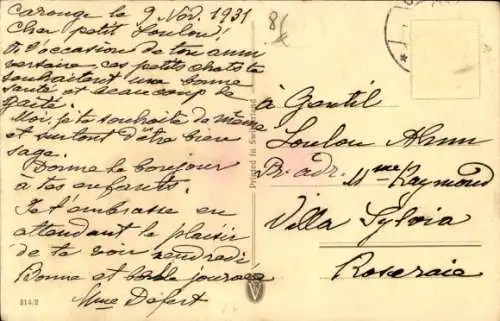 Carouge le 9 Nov. 1931
Cher petit Loulou!
A l'occasion de ton anni
versaire ces petits chats te
souhaitent une bonne
santé et beaucoup de
gaîté.
Moi, je te souhaite de même
et surtout d'être bien
sage.
Donne le bonjour
à tes enfants.
Je t'embrasse en
attendant le plaisir
de te voir vendredi
Bonne et belle journée
Mme Defert
314/2
Printed in
à Gentil
Loulou
P. adr. Mme Raymond
Villa Sylvia
Roseraie